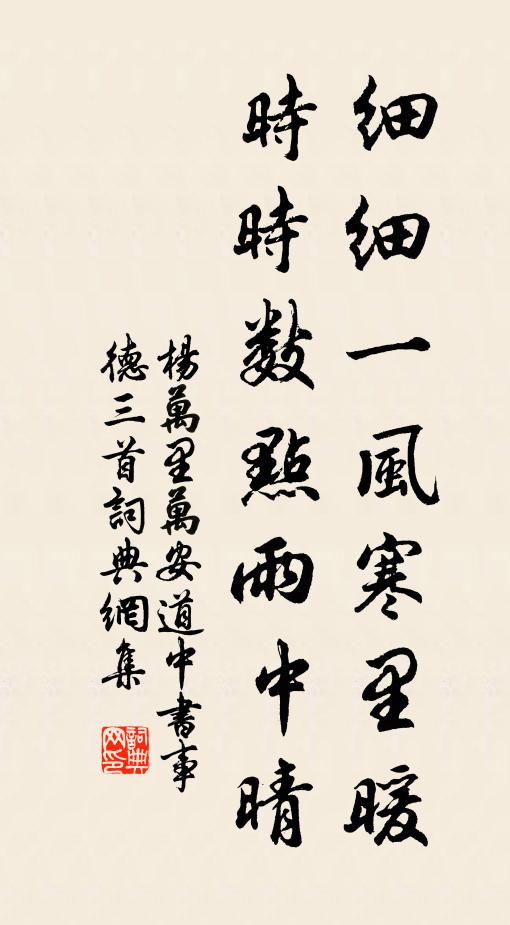 細細一風寒里暖
時時數點雨中晴
楊萬里萬安道中書事
德三首詞典網集
詞典网印